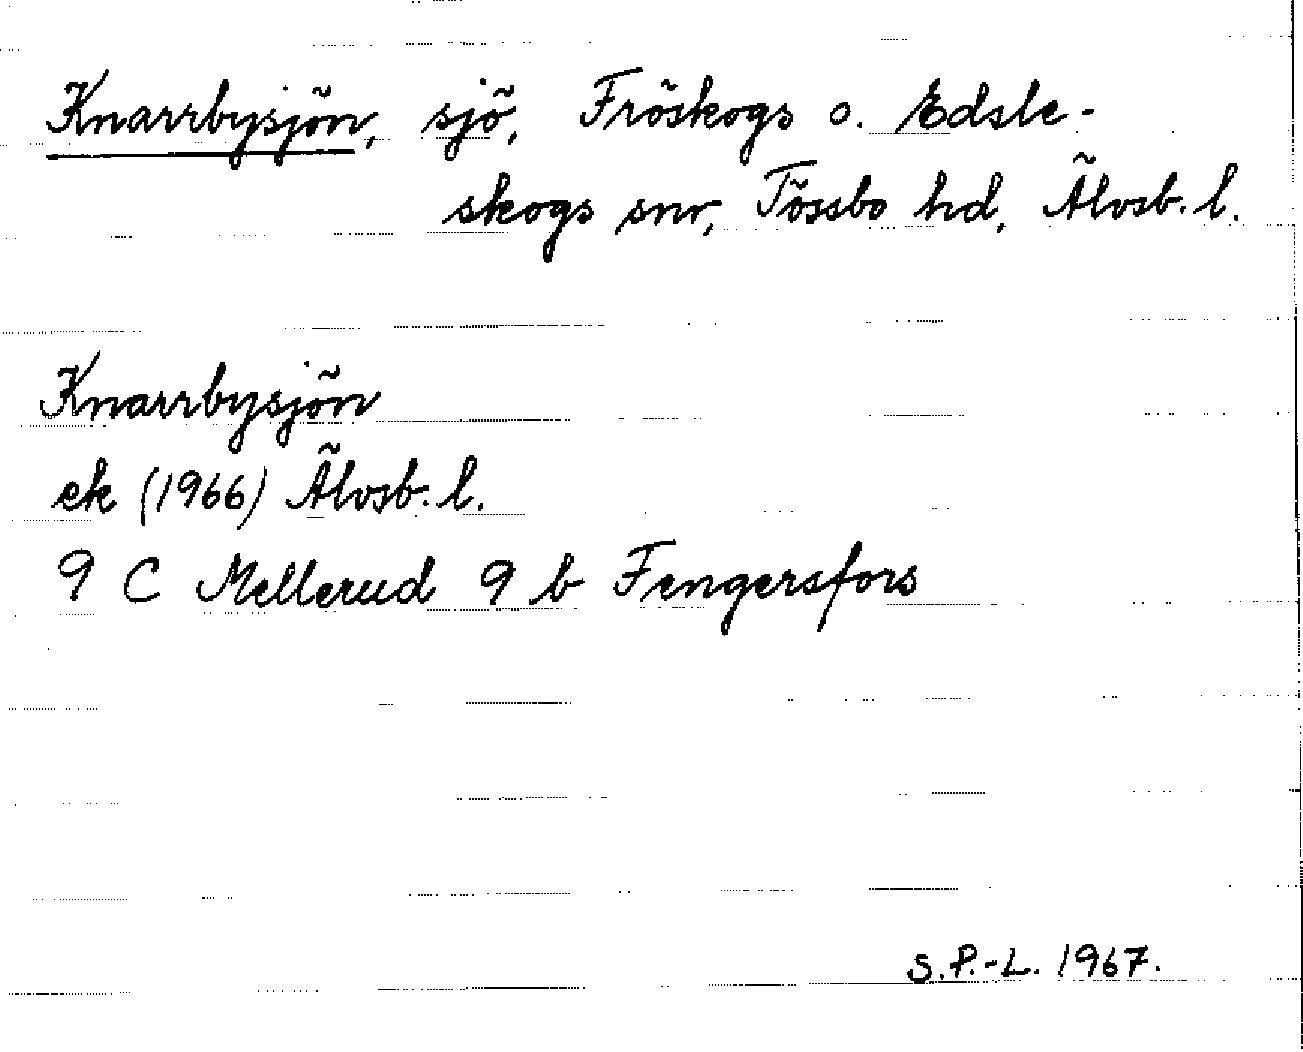 Knarrbysjön, sjö, Fröskogs o. Edsle-
skogs snr, Tössbo hd, Älvsb. l.
Knarrbysjön
ek (1966) Älvsb. l.
9 C Mellerud 9 b Fengersfors
S.P.-L. 1967.